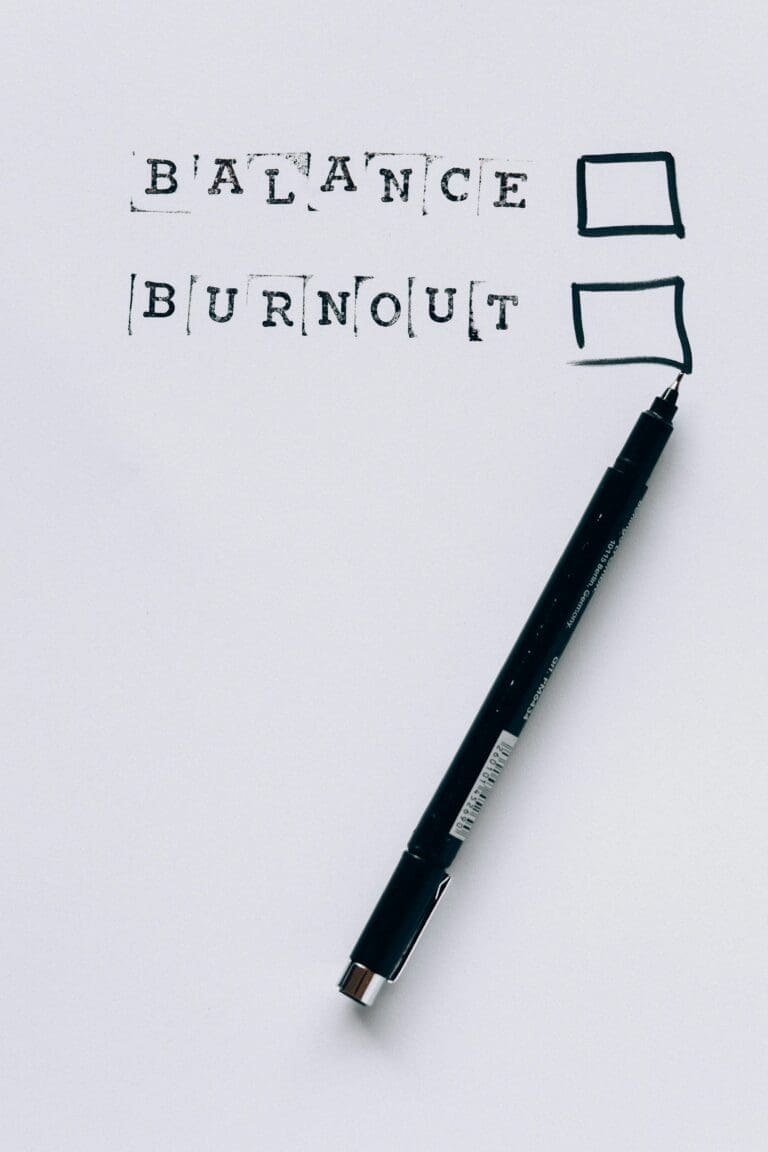 BALANCE
BURNOUT
10115 Berlin, Germany.